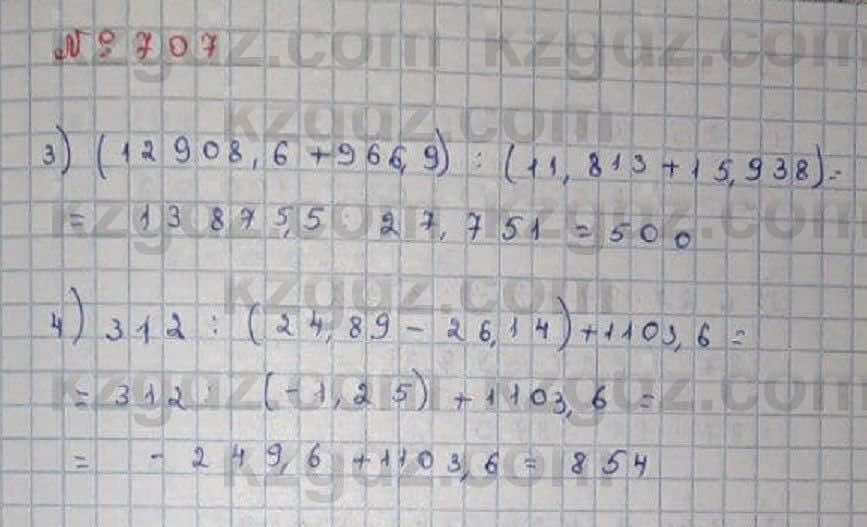 № 707
3) (12908,6 + 966,9) : (11,813 + 15,938) =
= 13875,5 : 27,751 = 500
4) 312 : (24,89 - 26,14) + 1103,6 =
= 312 : (-1,25) + 1103,6 =
= - 249,6 + 1103,6 = 854
kzgdz.com kzgdz.com
kzgdz.com
kzgdz.com kzgdz.com
kzgdz.com
kzgdz.com kzgdz.com
kzgdz.com